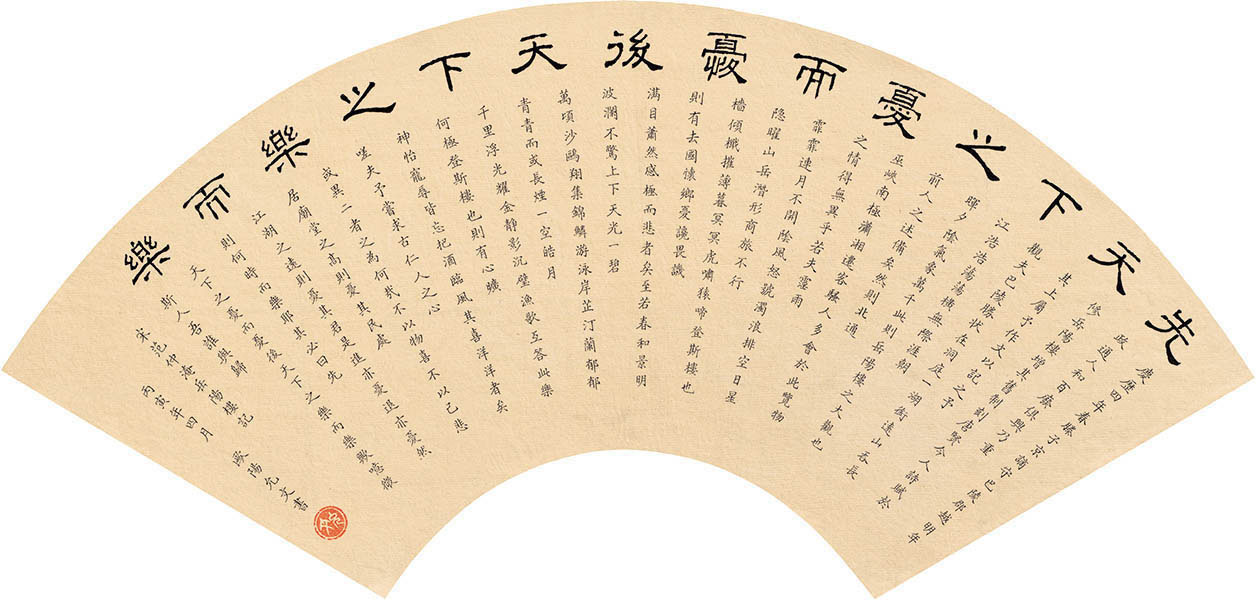 先天下之憂而憂後天下之樂而樂
慶歷四年春滕子京謫守巴陵郡越明年
政通人和百廢俱興乃重
修岳陽樓增其舊制刻唐賢今人詩賦於
其上屬予作文以記之予
觀夫巴陵勝狀在洞庭一湖銜遠山吞長
江浩浩蕩蕩橫無際涯朝
暉夕陰氣象萬千此則岳陽樓之大觀也
前人之述備矣然則北通
巫峽南極瀟湘遷客騷人多會於此覽物
之情得無異乎若夫霪雨
霏霏連月不開陰風怒號濁浪排空日星
隐曜山岳潛形商旅不行
檣傾檝摧薄暮冥冥虎嘯猿啼登斯樓也
則有去國懷鄉憂讒畏譏
滿目蕭然感極而悲者矣至若春和景明
波瀾不驚上下天光一碧
萬頃沙鷗翔集錦鱗游泳岸芷汀蘭郁郁
青青而或長煙一空皓月
千里浮光耀金靜影沉璧漁歌互答此樂
何極登斯樓也則有心曠
神怡寵辱皆忘把酒臨風其喜洋洋者矣
嗟夫予嘗求古仁人之心
或異二者之為何哉不以物喜不以己悲
居廟堂之高則憂其民處
江湖之遠則憂其君是進亦憂退亦憂然
則何時而樂耶其必曰先
天下之憂而憂後天下之樂而樂歟噫微
斯人吾誰與歸
宋范仲淹岳陽樓記
丙寅年四月 歐陽允文書